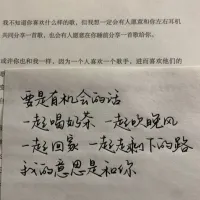 我不知道你喜欢什么样的歌，但我想一定会有人愿意和你左右耳机
共同分享一首歌，也会有人愿意在你睡前分享一首歌给你。
或许你也和我一样，因为一个人喜欢一个歌手，进而喜欢他们的
要是有机会的话
一起喝奶茶 一起吹晚风
一起回家 一起走剩下的路
我的意思是和你